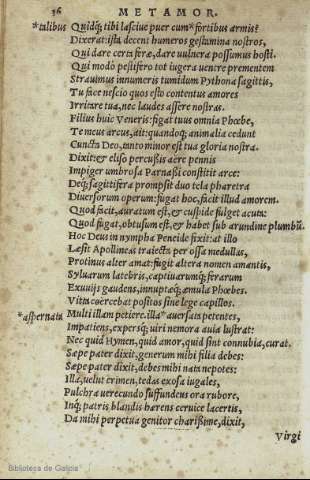 36 METAMOR.
*talibus Quidq; tibi lasciue puer cum *fortibus armis?
Dixerat: ista decent humeros gestamina nostros,
Qui dare certa feræ, dare vulnera possumus hosti.
Qui modo pestifero tot iugera uentre prementem
Strauimus innumeris tumidum Pythona sagittis,
Tu face nescio quos esto contentus amores
Irritare tua, nec laudes assere nostras.
Filius huic Veneris: figat tuus omnia Phœbe,
Te meus arcus, ait: quandoq; animalia cedunt
Cuncta Deo, tanto minor est tua gloria nostra.
Dixit: & eliso percussis aëre pennis
Impiger umbrosa Parnasi constitit arce:
Deq; sagittifera prompsit duo tela pharetra
Diuersorum operum: fugat hoc, facit illud amorem.
Quod facit, auratum est, & cuspide fulget acuta:
Quod fugat, obtusum est, & habet sub arundine plumbũ.
Hoc Deus in nympha Peneide fixit: at illo
Læsit Apollineas traiecta per ossa medullas,
Protinus alter amat: fugit altera nomen amantis,
Syluarum latebris, captiuarumq; ferarum
Exuuijs gaudens, innuptæq; æmula Phœbes.
Vitta coërcebat positos sine lege capillos.
*aspernata Multi illam petiere. illa *auersata petentes,
Impatiens, expersq; uiri nemora auia lustrat:
Nec quid Hymen, quid amor, quid sint connubia, curat.
Sæpe pater dixit, generum mihi filia debes:
Sæpe pater dixit, debes mihi nata nepotes:
Illa, uelut crimen, tedas exosa iugales,
Pulchra uerecundo suffundens ora rubore,
Inq; patris blandis hærens ceruice lacertis,
Da mihi perpetua genitor charißime, dixit,
Virgi
Biblioteca de Galicia